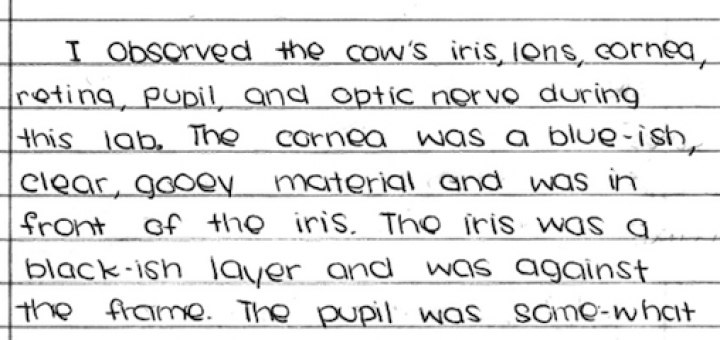 I observed the cow's iris, lens, cornea,
retina, pupil, and optic nerve during
this lab. The cornea was a blue-ish,
clear, gooey material and was in
front of the iris. The iris was a
black-ish layer and was against
the frame. The pupil was some-what